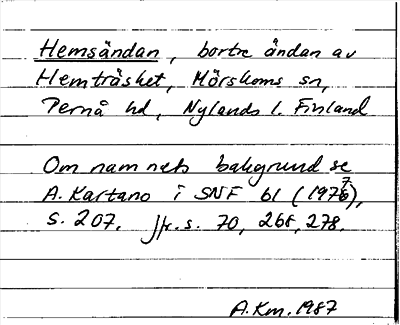 Hemsändan, bortre ändan av
Hemträsket, Mörskoms sn,
Pernå hd, Nylands l. Finland
Om namnets bakgrund se
A. Kartano i SNF 61 (1977),
s. 207. Jfr. s. 70, 268, 278.
A.Km. 1987